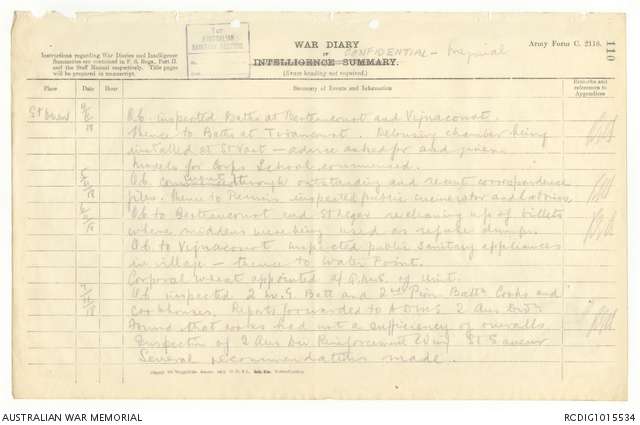 110
1ST
AUSTRALIAN
SANITARY SECTION
WAR DIARY
OF
INTELLIGENCE SUMMARY.
CONFIDENTIAL –
(Erase heading not required.)
Army Form C. 2118.
Instructions regarding War Diaries and Intelligence
Summaries are contained in F. S. Regs., Part II.
and the Staff Manual respectively. Title pages
will be prepared in manuscript.
Place
Date
Hour
Summary of Events and Information
Remarks and
references to
Appendices
O.C. inspected Baths at Berteaucourt and Vignacourt.
thence to Baths at . Delousing chamber being
installed at St Vast – advice asked for and given.
Models for Corps School commenced.
O.C. went through outstanding and recent correspondence
files. thence to inspected public incinerator and latrine.
O.C. to Berteaucourt and St Leger re cleaning up of billets
where middens were being used as refuse dumps.
O.C. to Vignacourt inspected public sanitary appliances
in village – thence to Water Point.
Corporal Wheat appointed of Unit.
O.C. inspected 2 M.G. Batt and 2nd Pion. Battn Cooks and
cookhouses. Reports forwarded to A.D.M.S 2 Aus Divn
Found that cooks had not a sufficiency of overalls.
Inspection of 2 Aus Div Reinforcement Wing St Sauveur
Several recommendations made.
AUSTRALIAN WAR MEMORIAL
RCDIG1015534